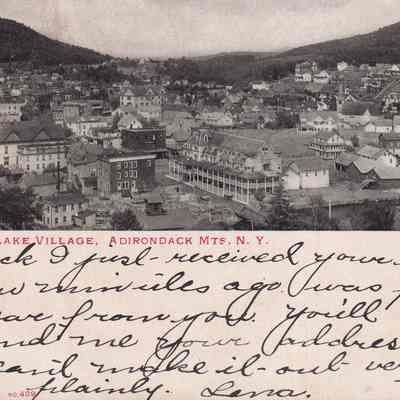 LAKE VILLAGE, ADIRONDACK MTS. N. Y.
ck I just received your
minutes ago, was
from you. you'll
me your address
can't make it out
plainly. Lena.
NO. 409